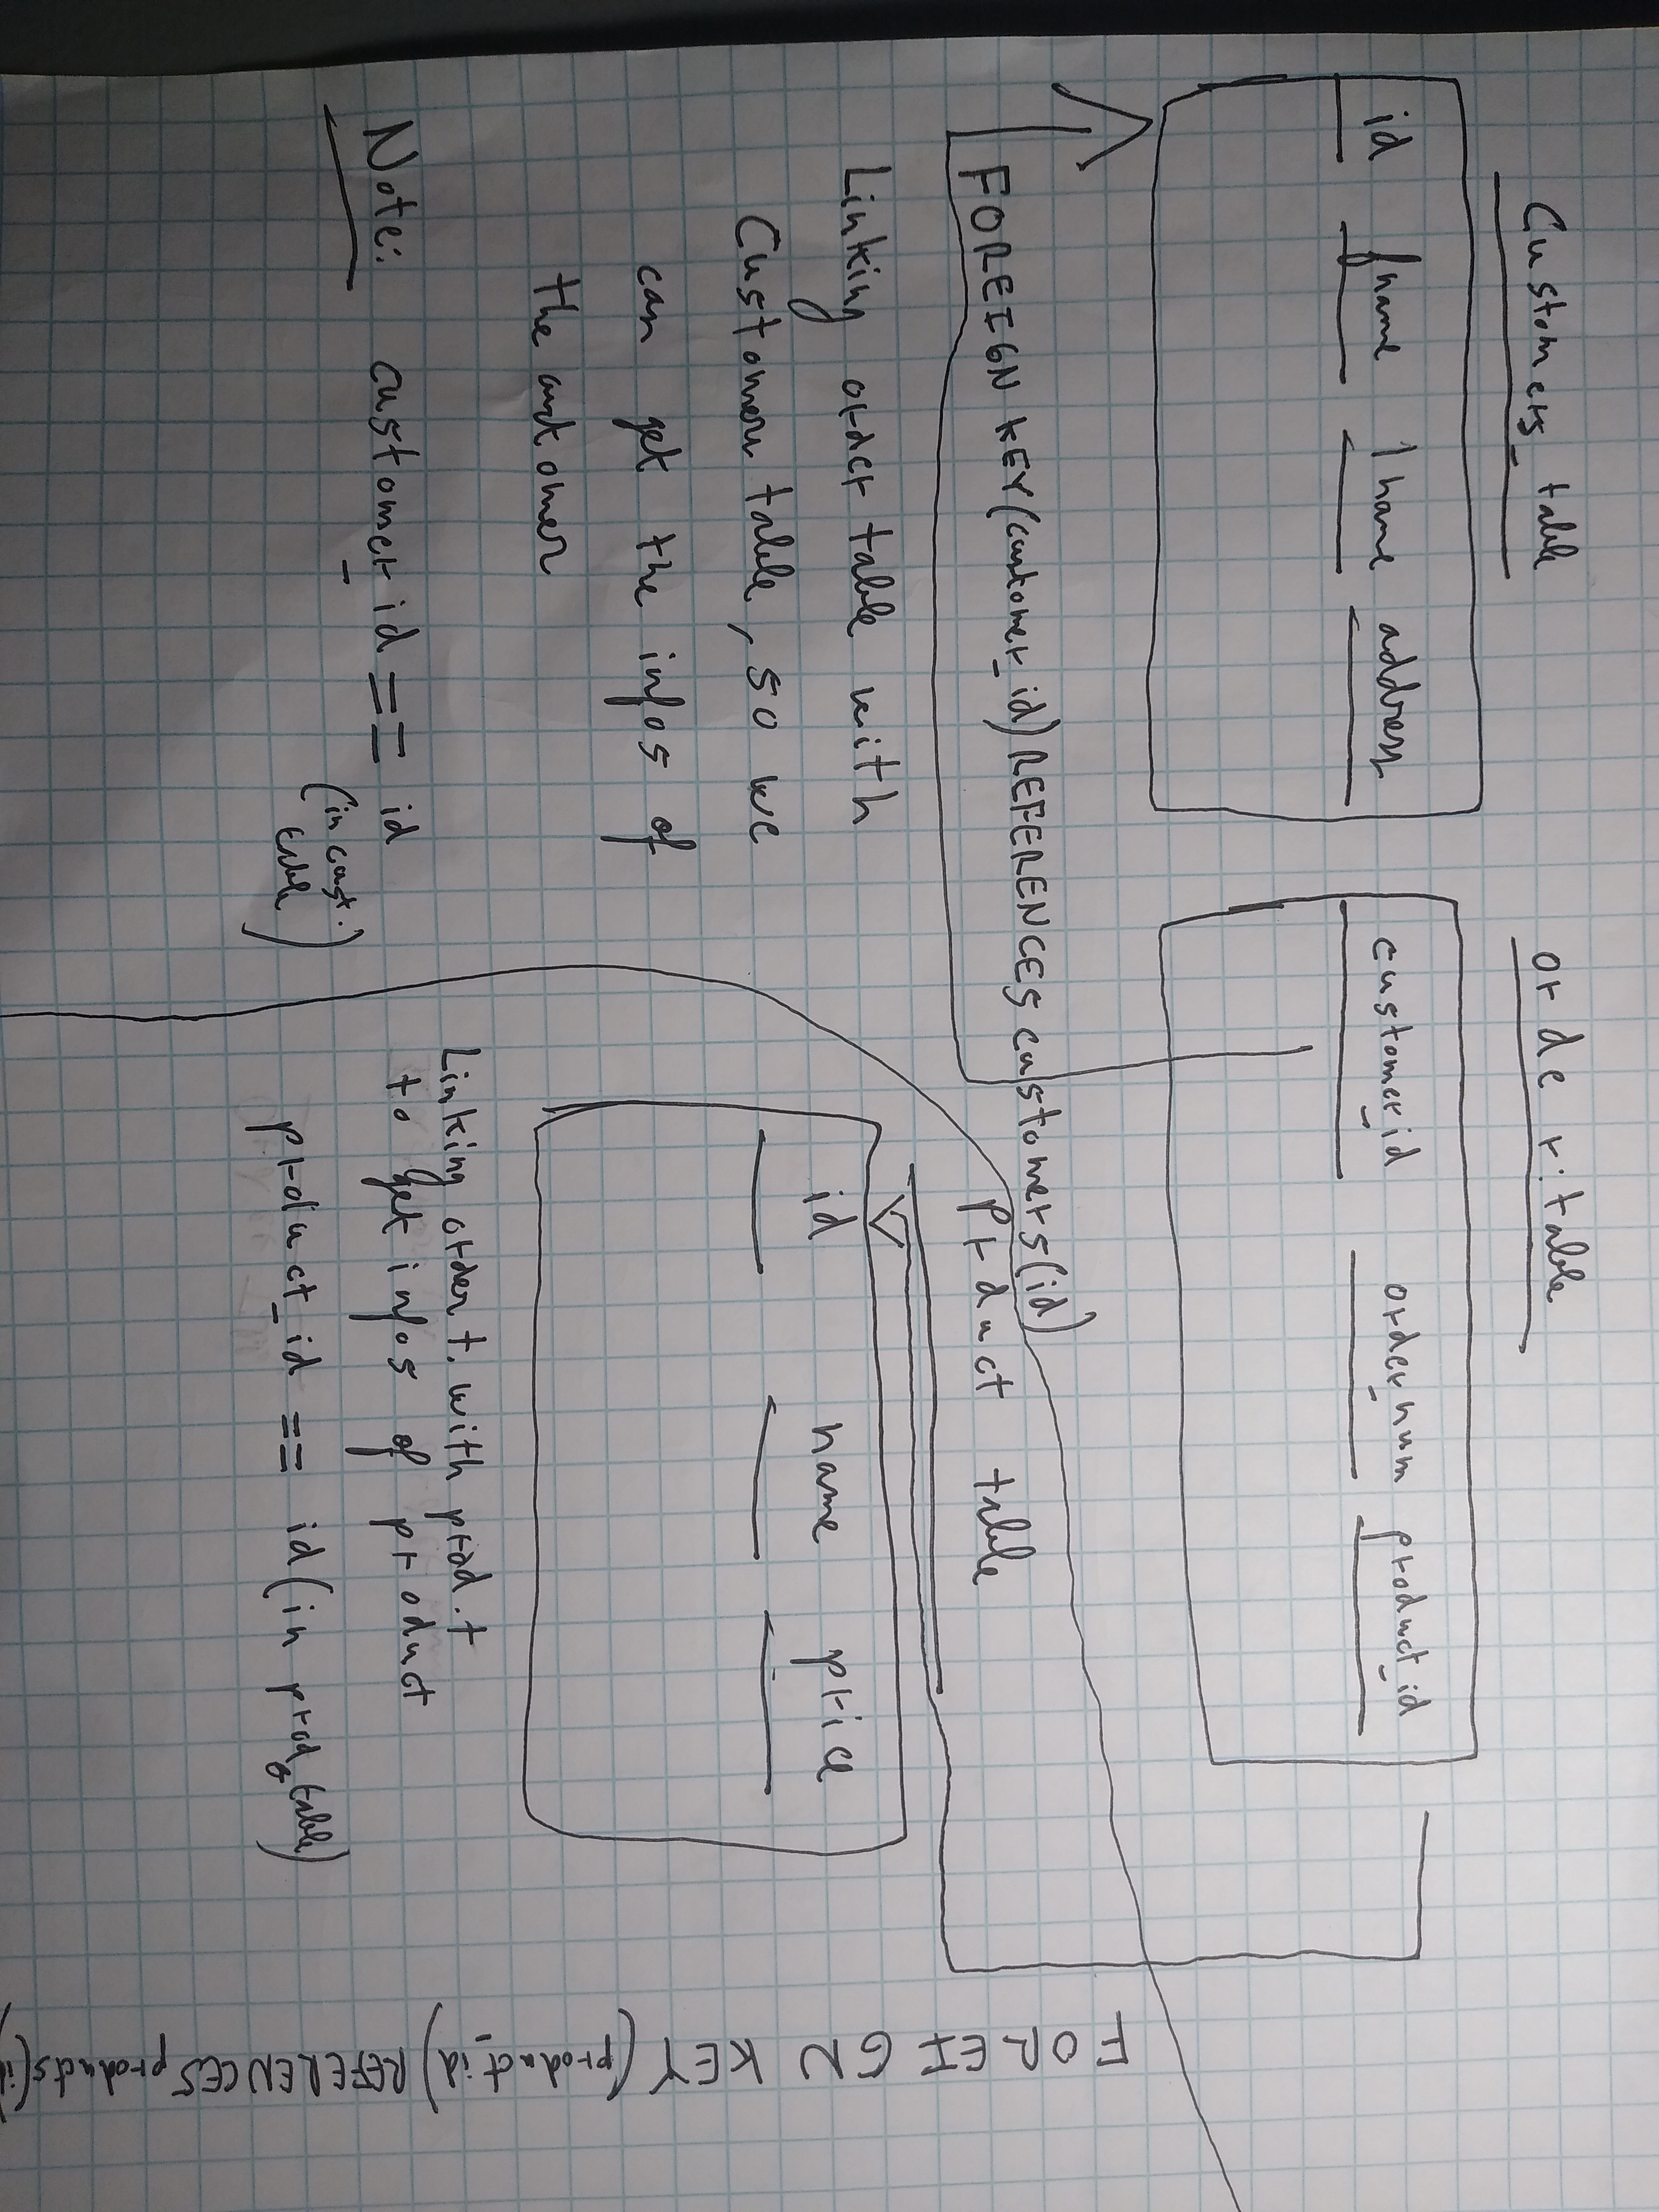 Customers_table
id fname lname address
order.table
customer_id order_num product_id
FOREIGN KEY (customer_id) REFERENCES customers(id)
Linking order table with
Customer table, so we
can get the infos of
the customer
Note: customer_id == id
(in cust.
table)
Product table
id name price
Linking order t. with prod. t
to get infos of product
product_id == id (in prod. table)
FOREIGN KEY (product_id) REFERENCES products(id)